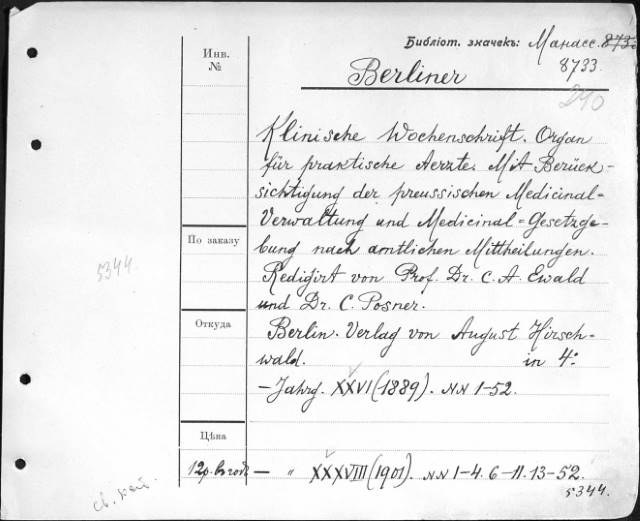 Библіот. значекъ: Манасс. 8733
8733.
Berliner
240
Инв.
№
Klinische Wochenschrift. Organ
für praktische Aerzte. Mit Berück-
sichtigung der preussischen Medicinal=
Verwaltung und Medicinal=Gesetzge-
bung nach amtlichen Mittheilungen.
По заказу
5344
Redigirt von Prof. Dr. C. A. Ewald
und Dr. C. Posner.
Откуда
Berlin. Verlag von August Hirsch-
wald. in 4°
— Jahrg. XXVI (1889). NN 1-52.
Цѣна
12р. в годъ — " XXXVIII (1901). NN 1-4. 6-11. 13-52.
5344.